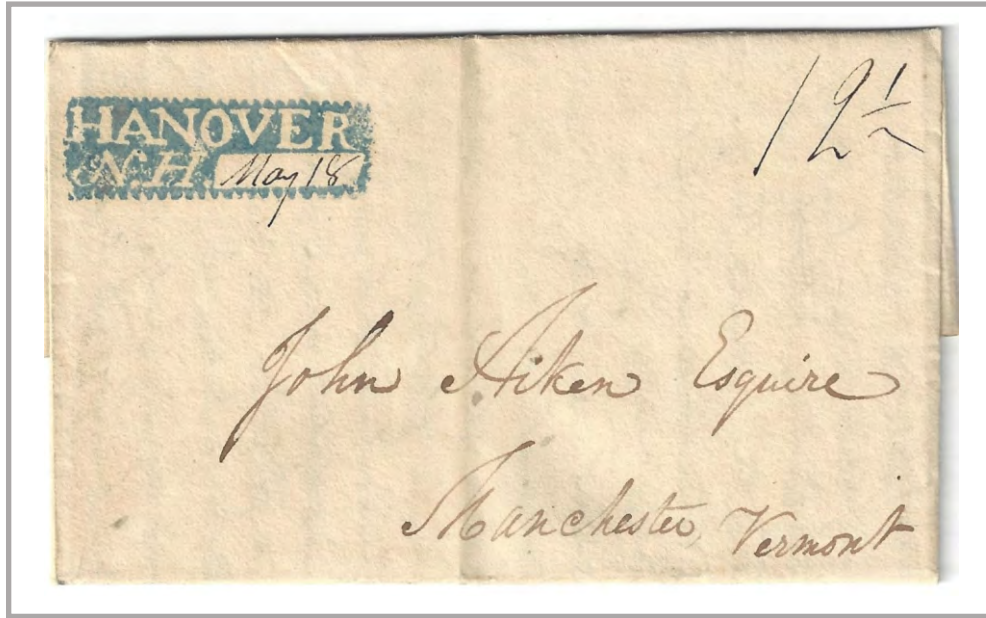 HANOVER
N.H. May 18
12½
John Aiken Esquire
Manchester, Vermont